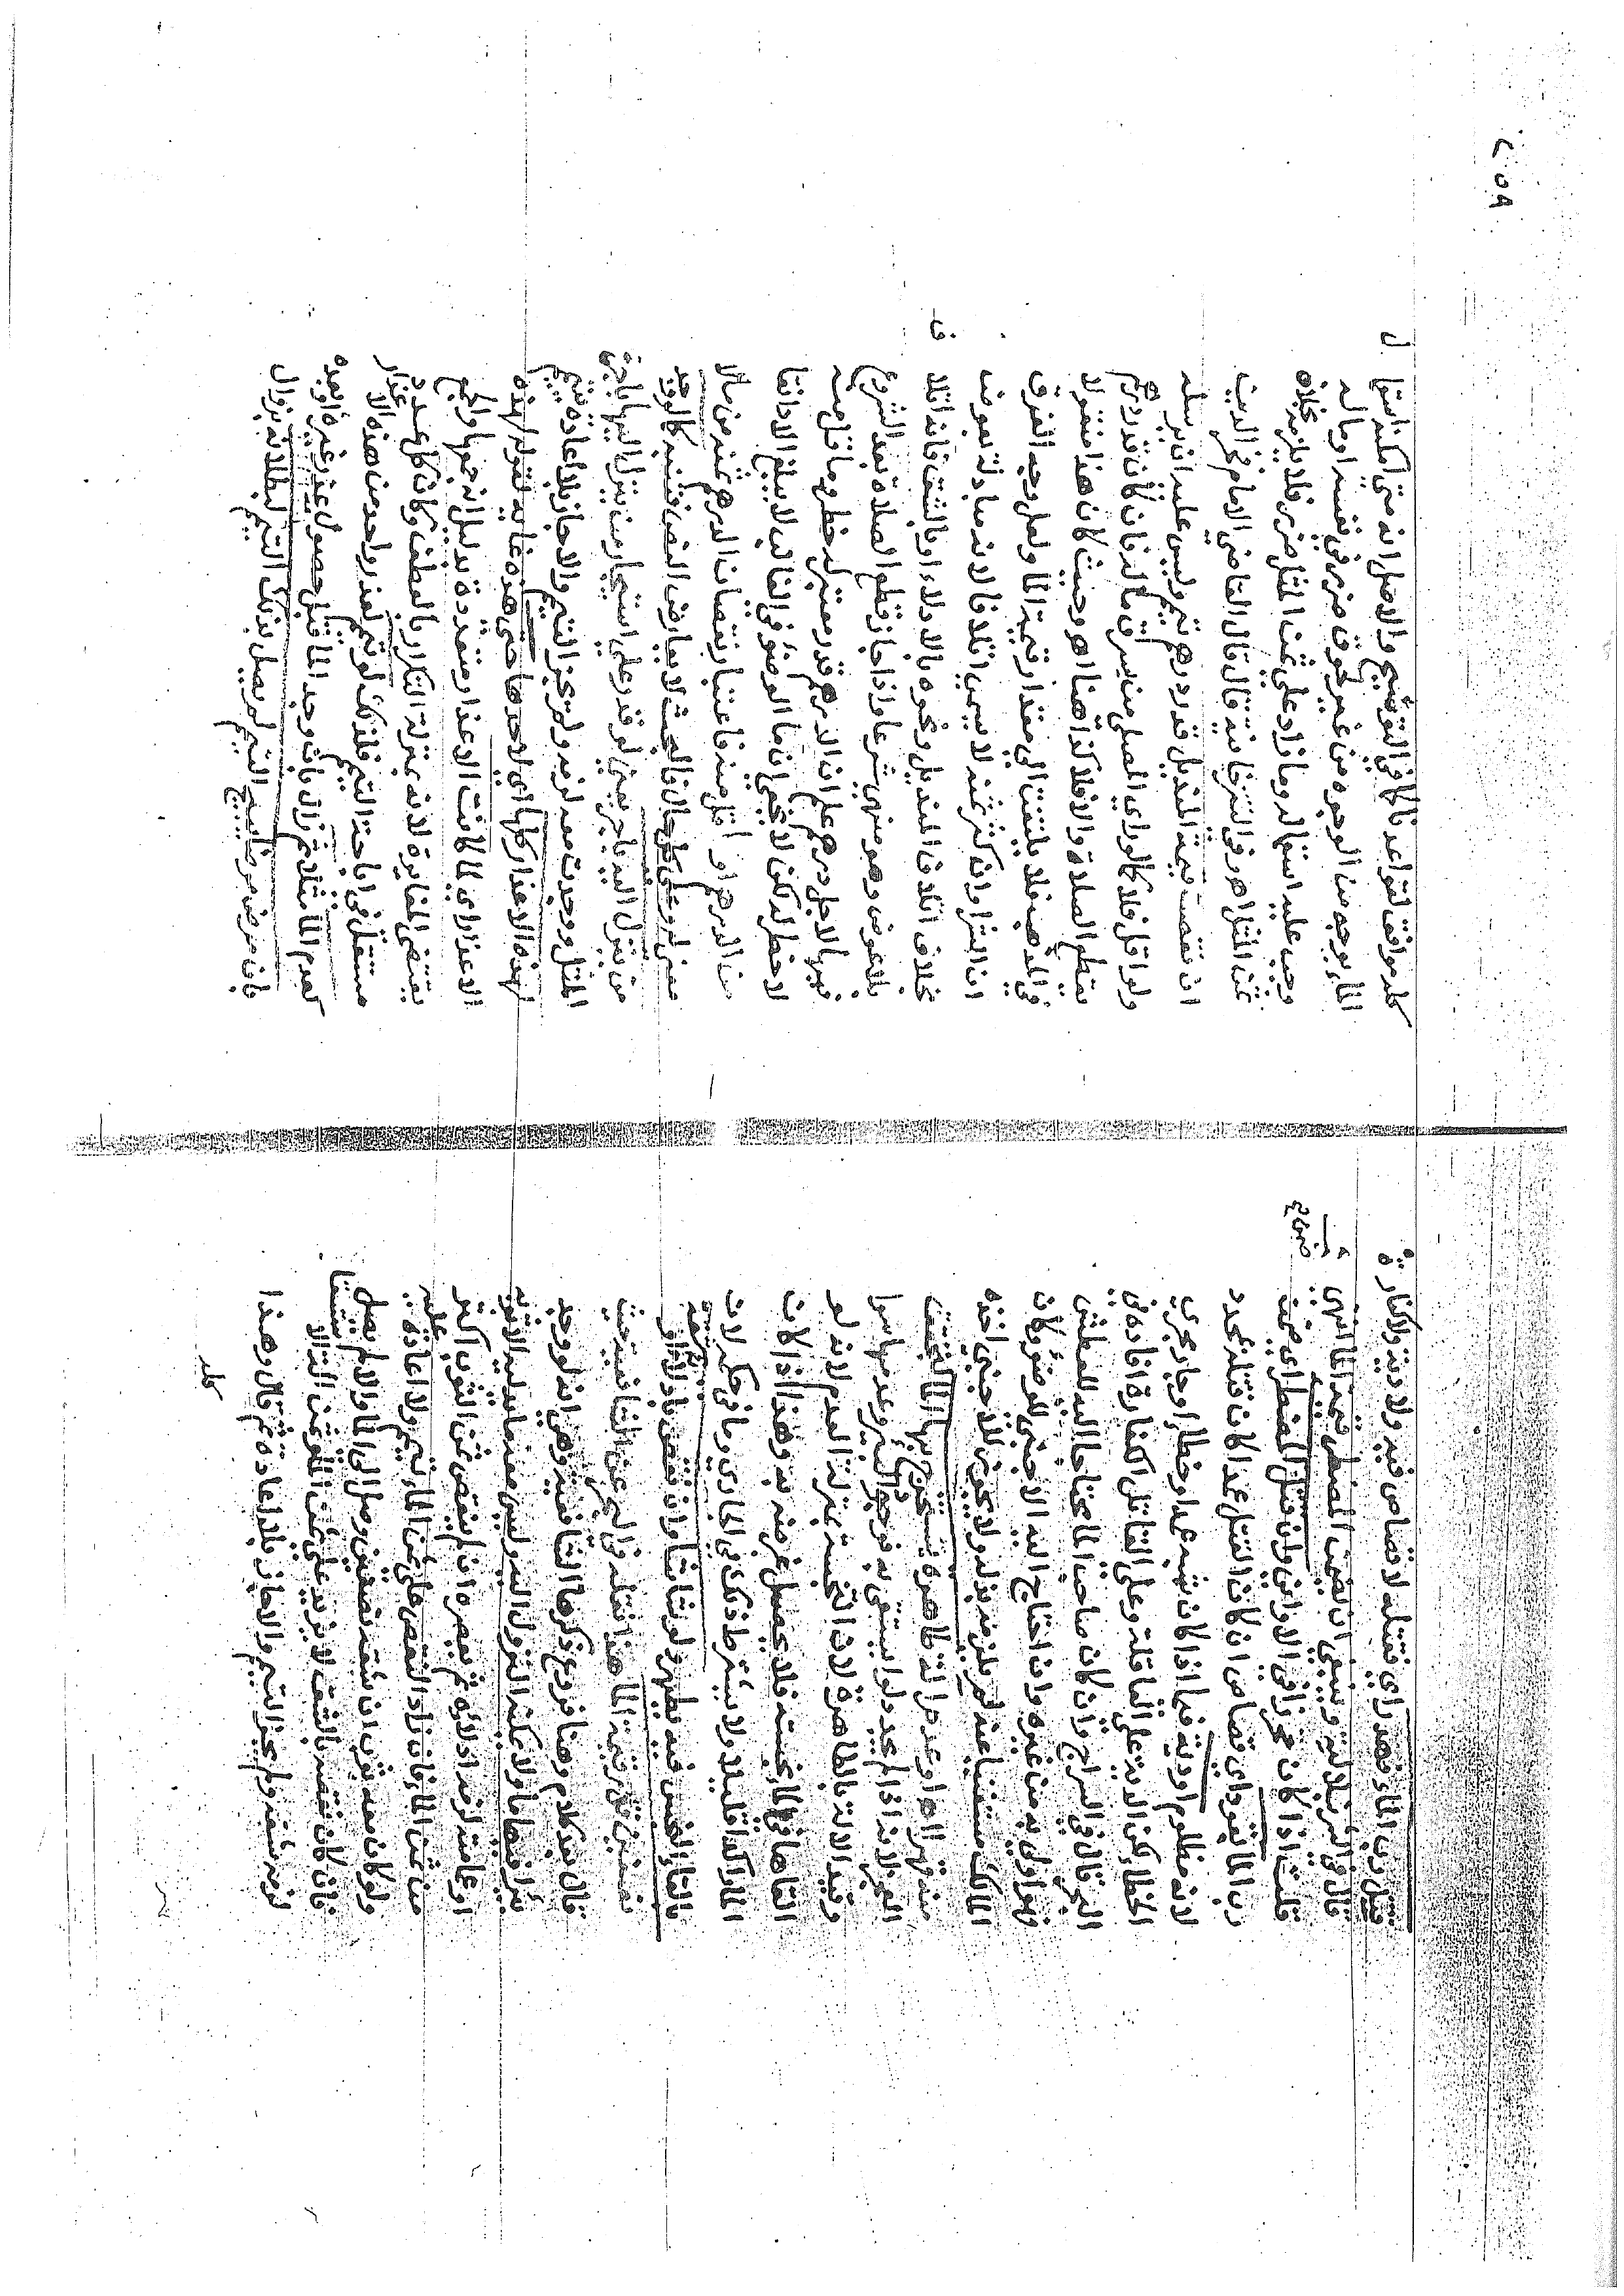 قتل رب الماء فهدر اي فقتله لا قصاص فيه ولا دية ولا كفارة
قال في الشرنبلالية وينبغي ان يضمن المضطر قيمة الماء انتهى
قلت اذا كان محرزا في الاواني وان قتل المضطر اي من
رب الماء بقود اي قصاص ان كان القتل عمدا كان قتله بمحدد
لانه مظلوم او دية فيما اذا كان شبه عمد او خطا او جار مجرى
الخطاء لكن الدية على العاقلة وعلى القاتل الكفارة افاده في
البحر قال في السراج وان كان صاحب الماء محتاجا اليه للعطش
فهو اولى به من غيره وان احتاج اليه الاجنبي للوضوء وكان
المالك مستغنيا عنه لم يلزمه بذله ولا يجوز للاجنبي اخذه
منه قهرا اهـ او عدم الة طاهرة يستخرج بها الماء لتحقق
العجز لانه اذا لم يجد دلوا يستقي به فوجود البئر وعدمها سوا
وقيد الالة بالطاهرة لان النجسة بمنزلة العدم لانه لو
القاها في الماء نجسته فلا يحصل غرضه به وهذا اذا كان
الماء راكدا قليلا ولا يشترط ذلك في الجاري وما في حكمه لان
بالقاء النجس فيه يطهر ولو شاشا وان نقص بادلائه او شقه
نصفين قدر قيمة الماء هذا نقله في البحر عن الشافعية حيث
قال بعد كلام وهنا فروع ذكرها الشافعية وهي انه لو وجد
بئرا فيها ماء ولا يمكنه النزول اليه وليس معه ما يدليه الا ثوبه
او عمامته لزمه ادلاؤه ثم يعصره ان لم ينقص ثمن الثوب اكثر
من ثمن الماء فان زاد النقص على ثمن الماء تيمم ولا اعادة عليه
ولو كان معه ثوب ان شقه نصفين وصل الى الماء والا لم يصل
فان كان نقصه بالشق لا يزيد على ثمن الماء وثمن الة الاستقا
لزمه شقه ولم يجز التيمم والا جاز بلا اعادة ثم قال وهذا
كله
٢٥٩
كله موافق لقواعدنا كما في التوشيح والاصل انه متى امكنه استعمال
الماء بوجه من الوجوه من غير لحوق ضرر في نفسه او ماله
وجب عليه استعماله وما زاد على ثمن المثل ضرر فلا يلزمه بخلاف
ثمن المثل اهـ وفي التترخانية قال القاضي الامام فخر الدين
ان نقصت قيمة المنديل قدر درهم تيمم وليس عليه ان يرسله
ولو اقل فلا كما لو راى المصلي من يسرق ماله فان كان قدر درهم
يقطع الصلاة والا فلا كذا هنا اهـ وحيث كان هذا منقولا
في المذهب فلا يلتفت الى مقدار قيمة الماء ولعل وجه الفرق
ان الشراء وان كثر ثمنه لا يسمى اتلافا لانه مبادلة بعوض
بخلاف اتلاف المنديل ونحوه بالادلاء او بالشق فانه اتلاف
بلا عوض وهو منهي شرعا واذا جاز قطع الصلاة بعد الشروع
فيها لاجل درهم علم ان الدرهم قدر معتبر له خطر وما قل منه
لا خطر له لكن لا يخفى ان ماء الوضوء في الغالب لا يبلغ الا دانقا
من الدرهم او اقل منه فاعتبار نقصان الدرهم ثمنه من مالا
معنى له وعلى كل حال فالبحث لا يعارض النص فتنبه كما لو وجد
من ينزل اليه باجر يعني لو قدر على استيجار من ينزل اليها باجرة
المثل ووجدت معه لزمه ولم يجز التيمم والا جاز بلا اعادة تيمم
لهذه الاعذار كلها اي لاحدها حتى هذه غاية لقوله لهذه
الاعذار اي لما كانت الاعذار متعددة بدليل انه جمعها والجمع
يقتضي المغايرة لانه بمنزلة التكرار بالعطف وكان كل عذر
مستقل في اباحة التيمم فلذلك لو تيمم لعذر واحد من هذه الاعذار
كعدم الماء مثلا ثم زال بان وجد الماء قبل حصول عذر غيره او بعده
بان مرض مرضا يبيح التيمم لم يصل بذلك التيمم لبطلانه بزوال